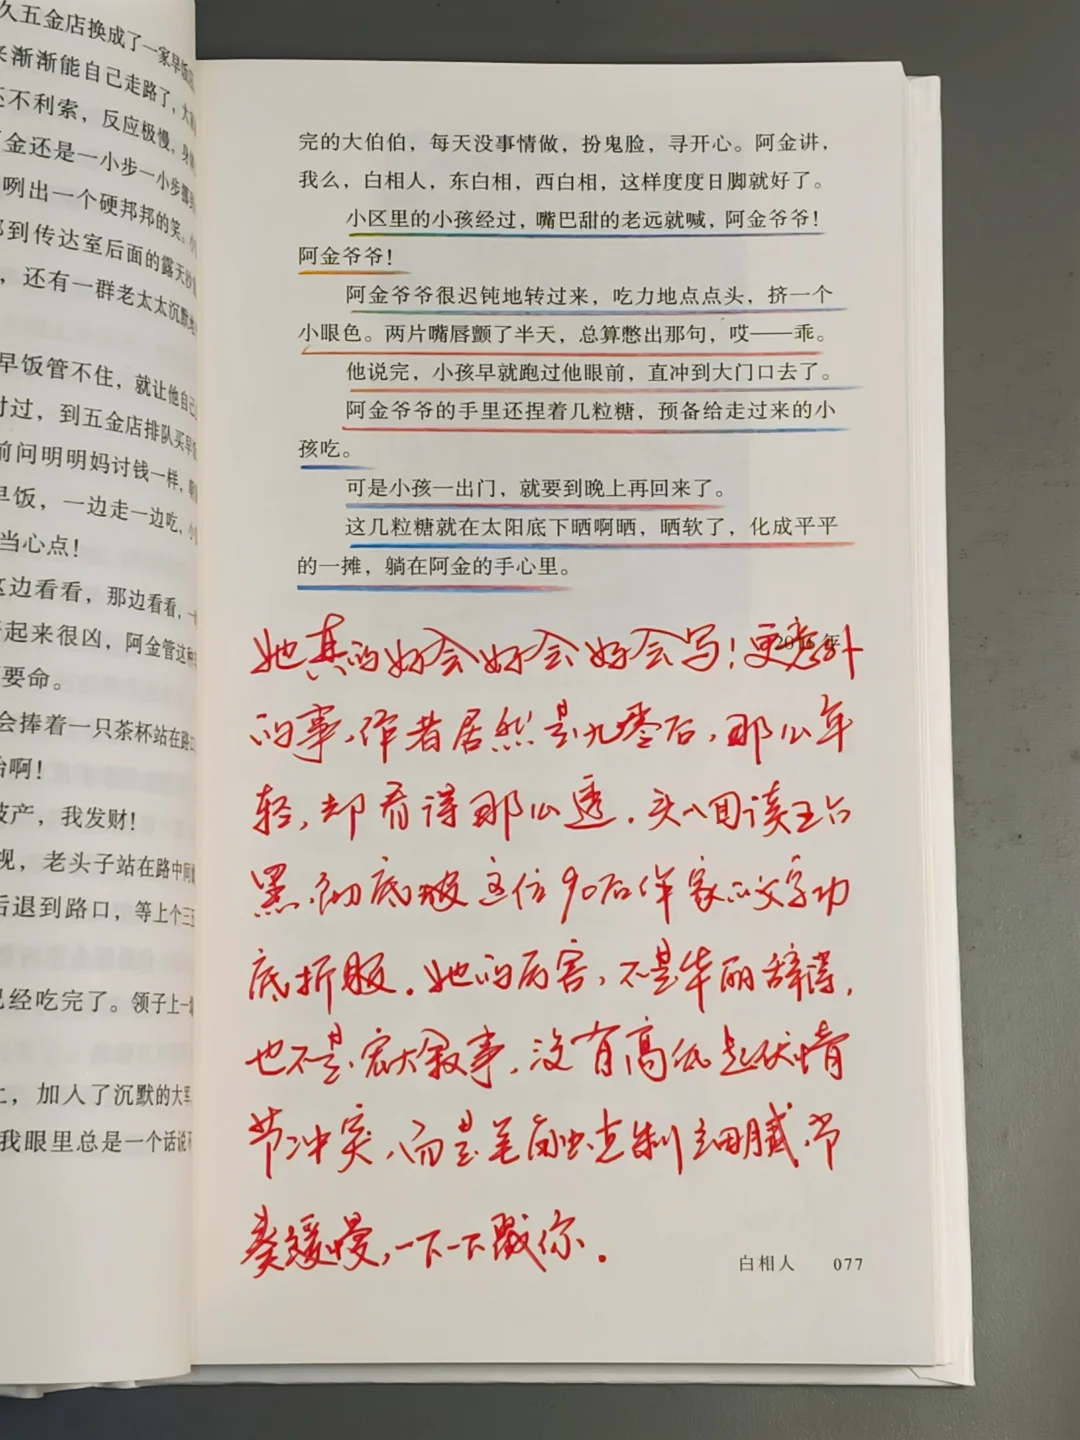 久五金店换成了一家早饭店
来渐渐能自己走路了，大
还不利索，反应极慢，身
金还是一小步一小步挪到
咧出一个硬邦邦的笑。小
挪到传达室后面的露天
，还有一群老太太沉默地
早饭管不住，就让他自己
付过，到五金店排队买早饭
前问明明妈讨钱一样，
早饭，一边走一边吃，小
当心点！
这边看看，那边看看，一
看起来很凶，阿金管这种
要命。
会捧着一只茶杯站在路口
台啊！
破产，我发财！
视，老头子站在路中间
后退到路口，等上个三五
已经吃完了。领子上一
上，加入了沉默的大军
我眼里总是一个话说不
完的大伯伯，每天没事情做，扮鬼脸，寻开心。阿金讲，
我么，白相人，东白相，西白相，这样度度日脚就好了。
小区里的小孩经过，嘴巴甜的老远就喊，阿金爷爷！
阿金爷爷！
阿金爷爷很迟钝地转过来，吃力地点点头，挤一个
小眼色。两片嘴唇颤了半天，总算憋出那句，哎——乖。
他说完，小孩早就跑过他眼前，直冲到大门口去了。
阿金爷爷的手里还捏着几粒糖，预备给走过来的小
孩吃。
可是小孩一出门，就要到晚上再回来了。
这几粒糖就在太阳底下晒啊晒，晒软了，化成平平
的一摊，躺在阿金的手心里。
她真的好会好会好会写！更意外
的事，作者居然是九零后，那么年
轻，却看得那么透。头一回读王占
黑，彻底被这位90后作家的文字功
底折服。她的厉害，不是华丽辞藻，
也不是宏大叙事，没有高低起伏情
节冲突，而是笔触克制细腻，节
奏缓慢，一下一下戳你。
白相人 077